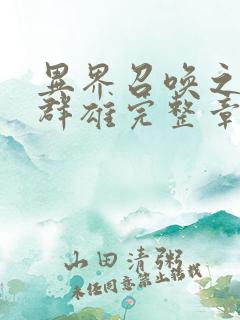 異界召喚之
群雄完整章
山田清粥
未经同意禁止转载